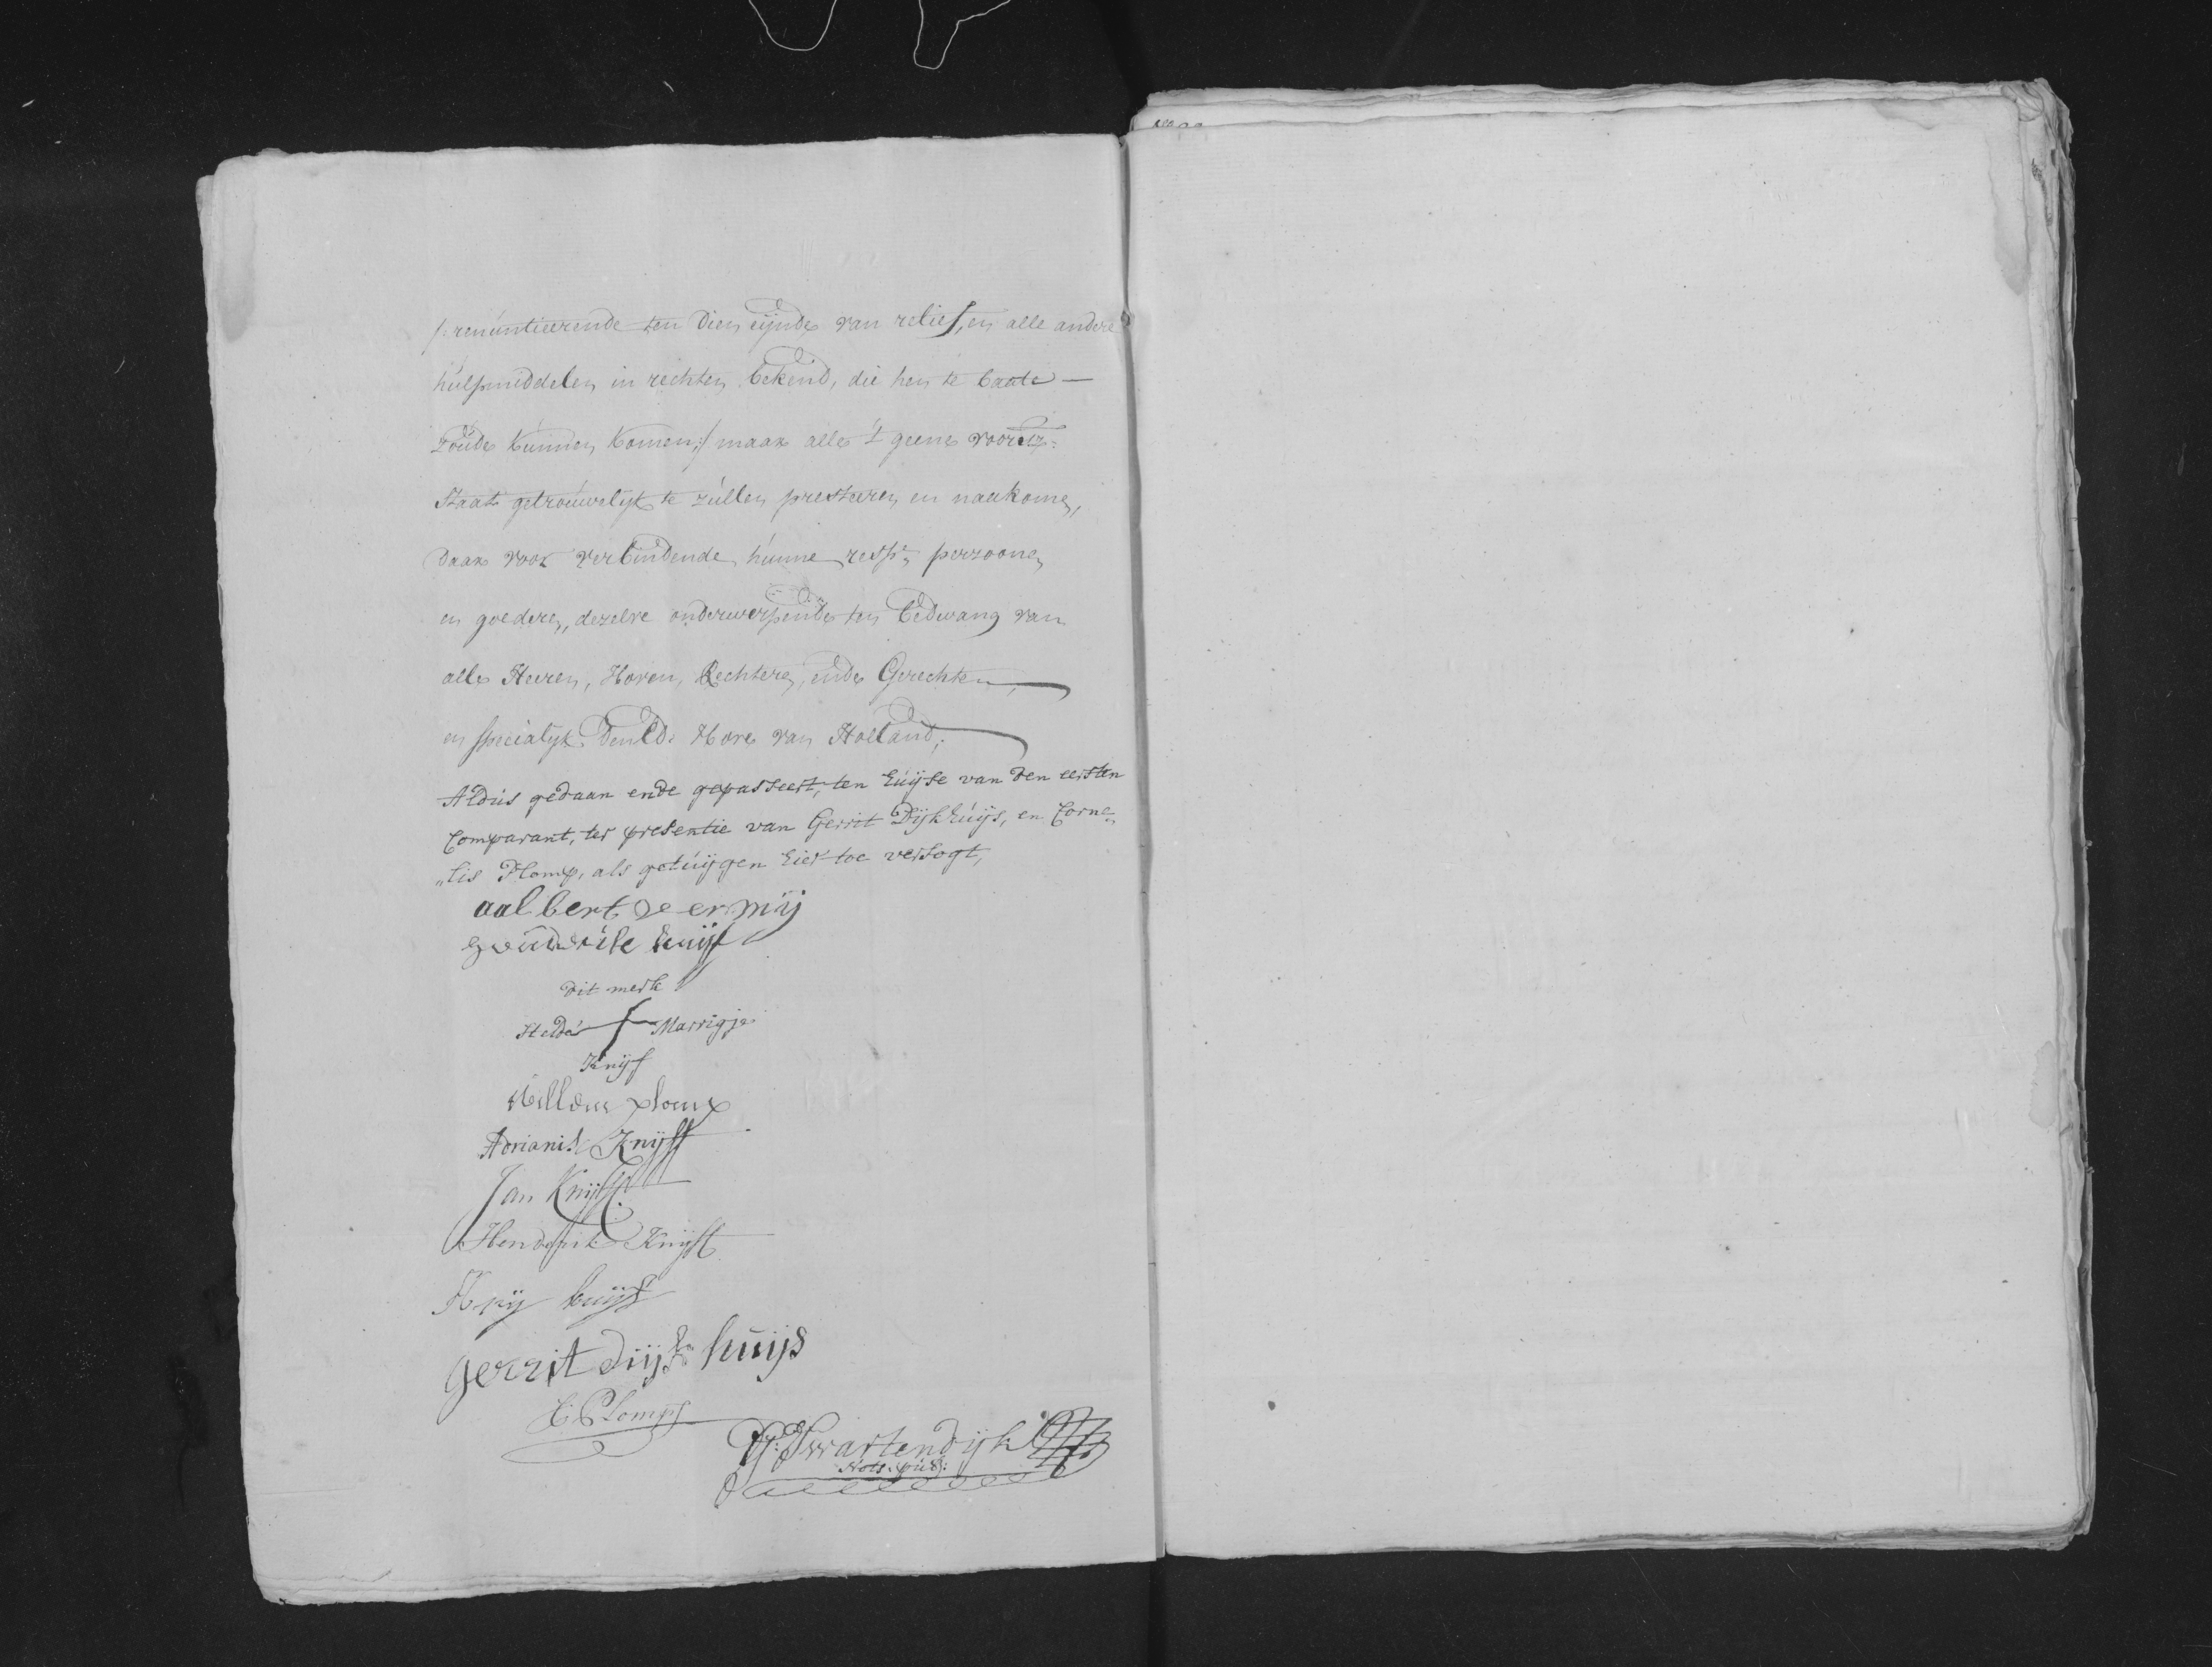 /:renúntieerende ten dien eijnde van relief, en alle andere
húlpmiddelen in rechten bekend, die hen te baate —
zoúde kúnnen komen:/ maar alle 't geene voorsz:
staat getroúwelijk te zúllen presteeren en naakomen,
daar voor verbindende húnne respe. perzoonen
en goederen, dezelve onderwerpende ten bedwang van
alle Heeren, Hoven, Rechteren, ende Gerechten,
en specialijk den Ed: Hove van Holland;
Aldús gedaan ende gepasseert, ten húijse van den eersten
Comparant, ter presentie van Gerrit Dijkhúijs, en Corne„
„lis Plomp, als getúijgen hier toe versogt,
aalbert veermij
knijf
dit merk
stelde Marrigje
Knijf
Willem plomp
Adrianis Knijff
Jan Knijff
Henderik Knijff
Arij knijf
gerrit dijkhuijs
C: Plomp
Swartendijk
Nots: púb: